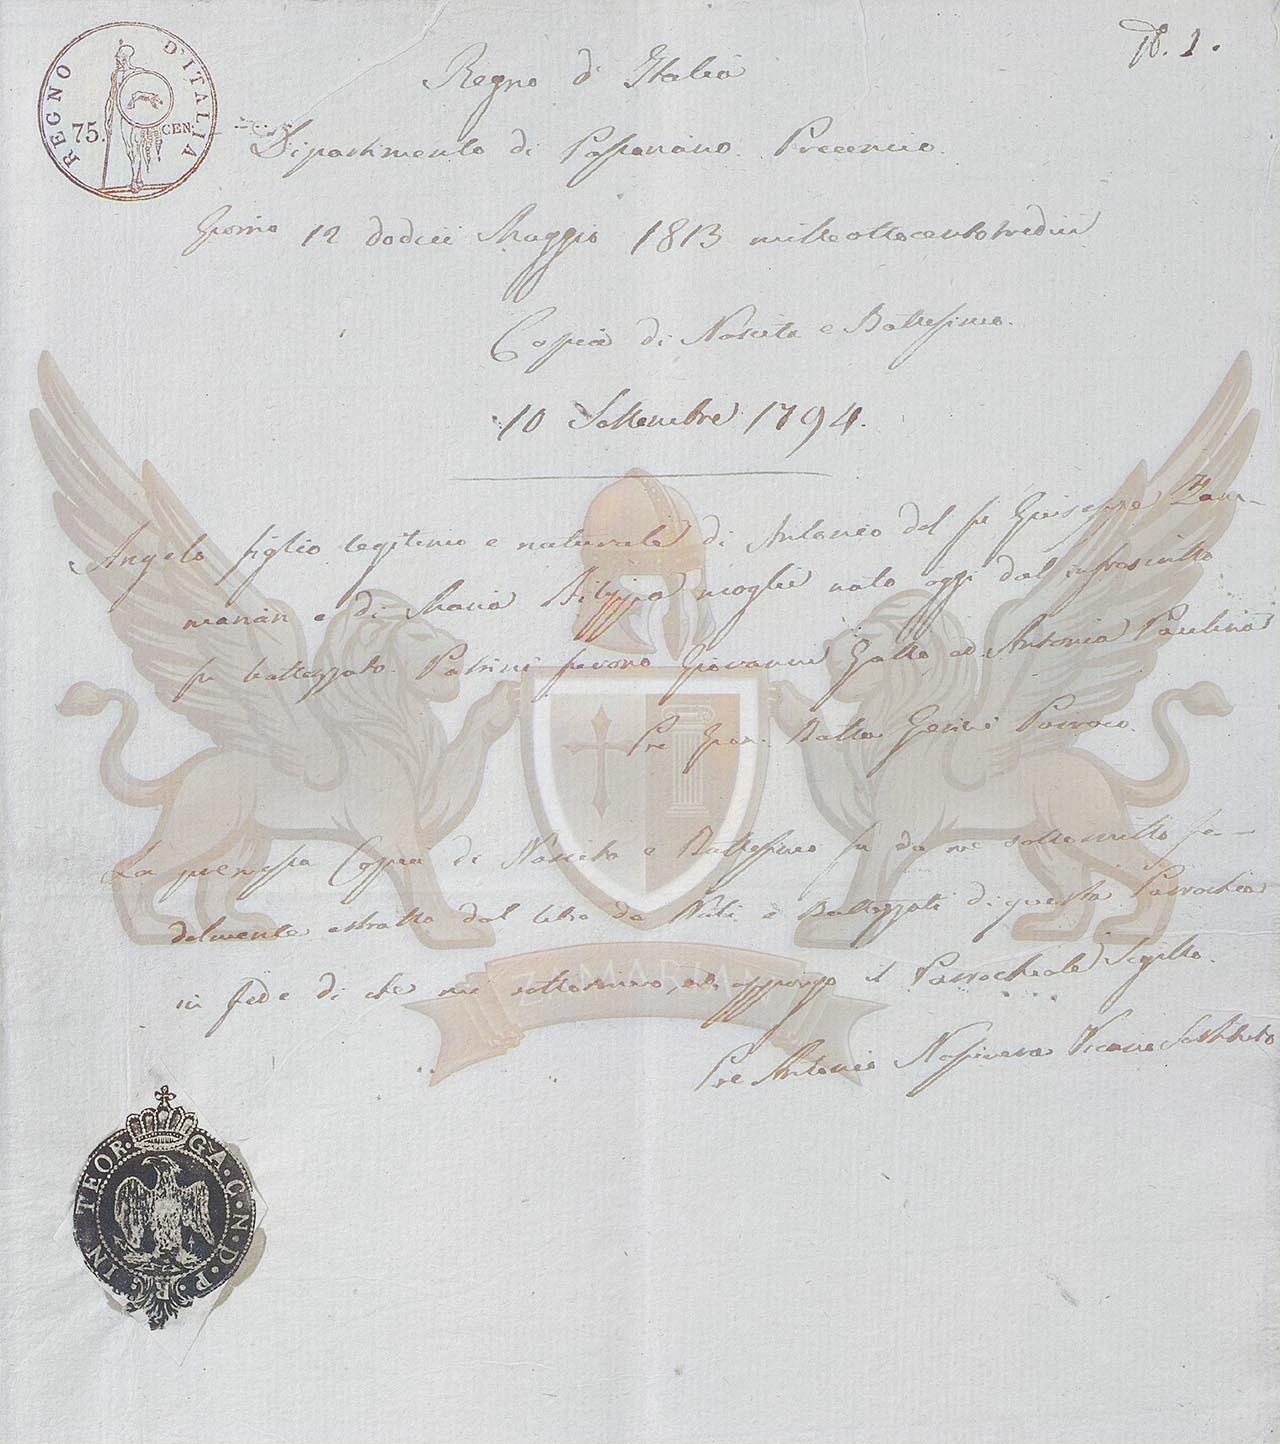 N. 1.
REGNO D'ITALIA
75. CEN.
Regno di Italia
Dipartimento di Passariano. Precenico.
Giorno 12 dodici Maggio 1813 milleottocentotredici
Copia di Nascita e Battesimo.
10 Settembre 1794.
Angelo figlio legitimo e naturale di Antonio del fu Giuseppe Zam-
marian e di Maria Filippa moglie nato oggi dal infrascritto
fu battezzato. Padrini furono Giovanni Gallo ed Antonia Paulina
Pre Gion. Batta Parroco.
La premessa Copia di Nascita e Battesimo fu da me sottoscritto fe-
delmente estratta dal libro da Nati e Battezzati di questa Parrochia
in fede di che mi sottoscrivo, ed appongo il Parrochiale Sigillo.
Pre Antonio Vicario Sostituto
IN TEOR. G. A. C. N. D. P. R.
ZAMARIAN